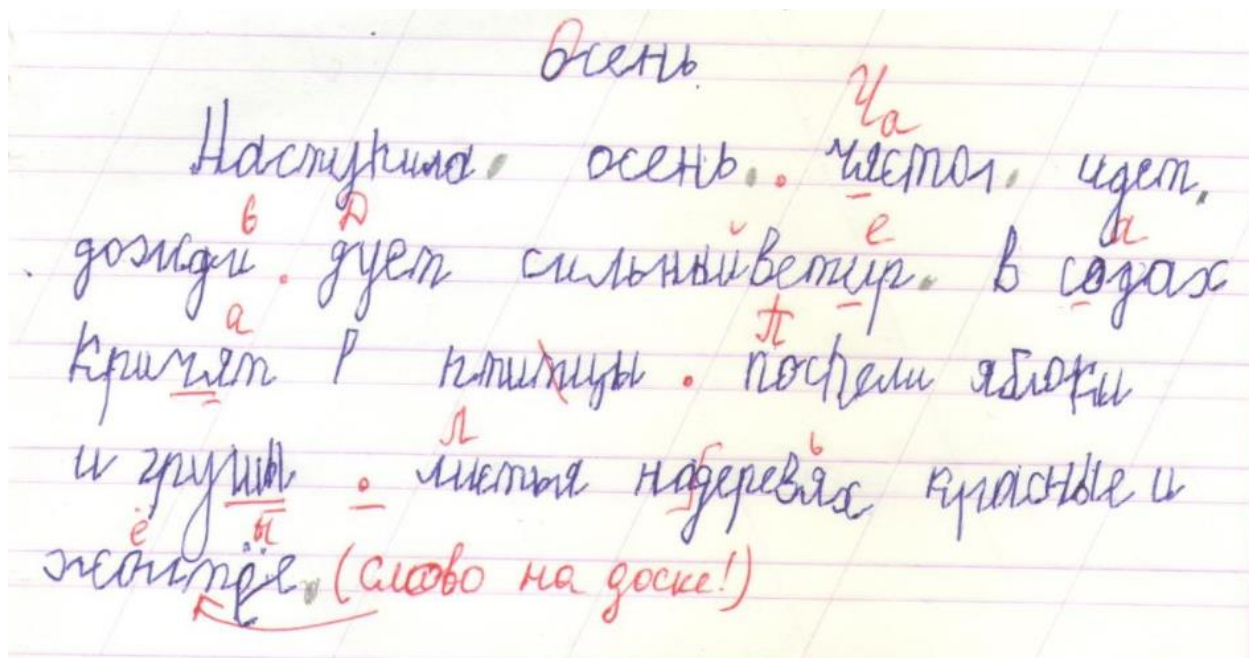 Осень.
Ча
Наступила. осень.. чястои. идет.
в Д е а
дожди. дует сильныйветир. в содах
а П
кричят птитцы. поспели яблоки
Л ь
и грушы. листья надеревях красные и
ё ы
жоитёе. (слово на доске!)